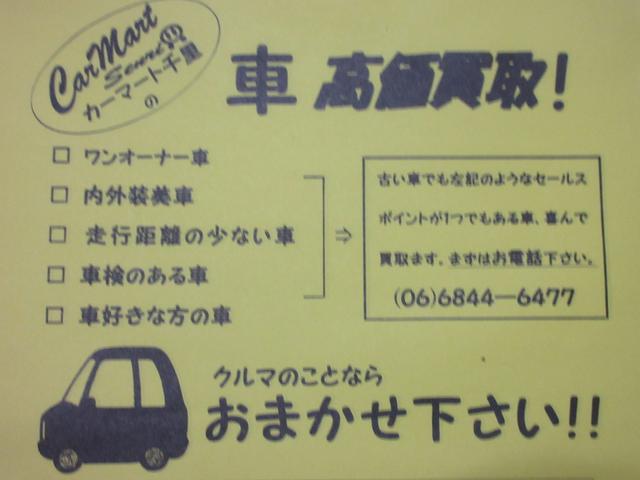 CarMart
Senri
カーマート千里
の
車 高価買取!
□ ワンオーナー車
□ 内外装美車
□ 走行距離の少ない車
□ 車検のある車
□ 車好きな方の車
⇒
古い車でも左記のようなセールス
ポイントが1つでもある車、喜んで
買取ます。まずはお電話下さい。
(06)6844-6477
クルマのことなら
おまかせ下さい!!